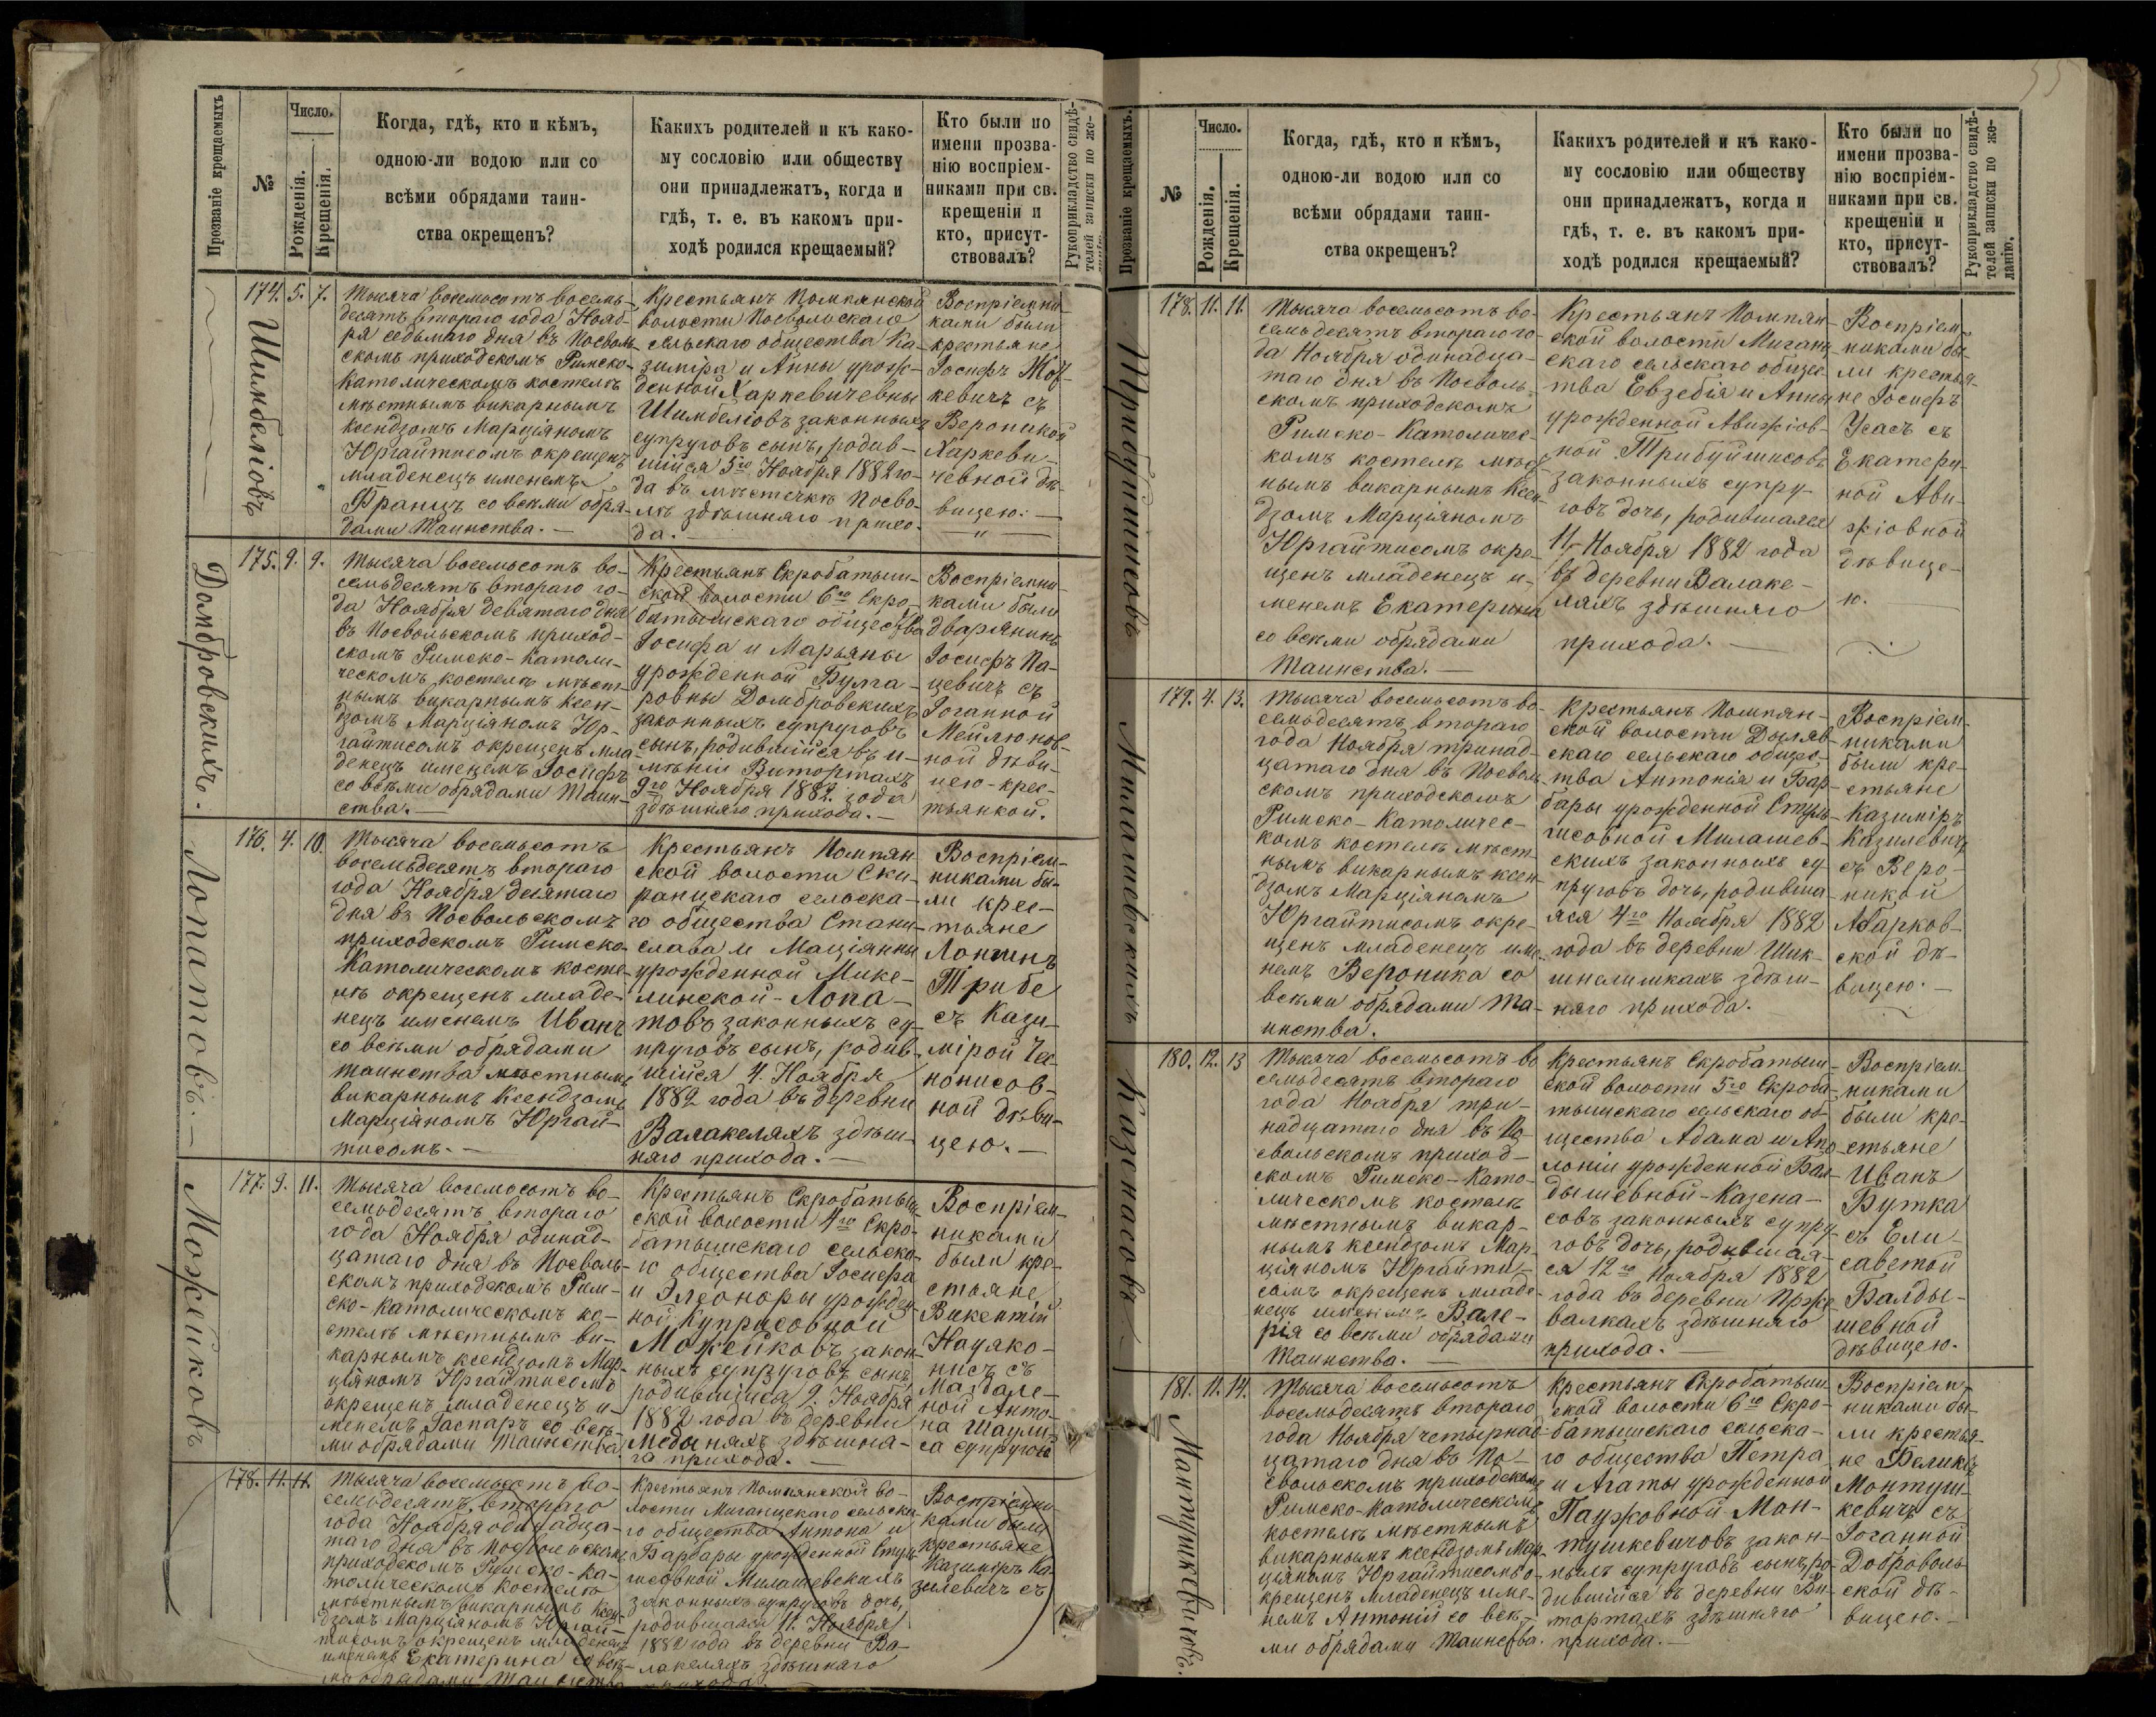 Прозваніе крещаемыхъ
№
Число.
Рожденія.
Крещенія.
Когда, гдѣ, кто и кѣмъ,
одною-ли водою или со
всѣми обрядами таин-
ства окрещенъ?
Какихъ родителей и къ како-
му сословію или обществу
они принадлежатъ, когда и
гдѣ, т. е. въ какомъ при-
ходѣ родился крещаемый?
Кто были по
имени прозва-
нію воспріем-
никами при св.
крещеніи и
кто, присут-
ствовалъ?
Рукоприкладство свидѣ-
телей записки по же-
Шимбеліовъ
174. 5. 7.
Тысяча восемьсотъ восемь-
десятъ втораго года Нояб-
ря седьмаго дня въ Посволь-
скомъ приходскомъ Римско-
Католическомъ костелѣ
мѣстнымъ викарнымъ
ксендзомъ Марціяномъ
Юргайтисомъ окрещенъ
младенецъ именемъ
Францъ со всѣми обря-
дами Таинства.—
Крестьянъ Помпянской
волости Посвольскаго
сельскаго общества Ка-
зиміра и Анны урож-
денной Харкевичевны
Шимбеліовъ законныхъ
супруговъ сынъ, родив-
шійся 5го Ноября 1882 го-
да въ мѣстечкѣ Посво-
лѣ здѣшняго прихо-
да.—
Воспріемни-
ками были
крестьяне
Іосифъ
кевичъ съ
Вероникой
Харкеви-
чевной дѣ-
вицею.—
Домбровскихъ.
175. 9. 9.
Тысяча восемьсотъ во-
семьдесятъ втораго го-
да Ноября девятаго дня
въ Посвольскомъ приход-
скомъ Римско-Католи-
ческомъ костелѣ мѣст-
нымъ викарнымъ ксен-
дзомъ Марціяномъ Юр-
гайтисомъ окрещенъ мла-
денецъ именемъ Іосифъ
со всѣми обрядами Таин-
ства.—
Крестьянъ Скробатыш-
ской волости 6го Скро-
батышскаго общества
Іосифа и Марьяны
урожденной Булга-
ровны Домбровскихъ
законныхъ супруговъ
сынъ, родившійся въ и-
мѣніи Виторталъ
9го Ноября 1882 года
здѣшняго прихода.—
Воспріемни-
ками были
дварянинъ
Іосифъ Па-
цевичъ съ
Іоганной
Мейлюнов-
ной дѣви-
цею-крес-
тьянкой.
Лопатовъ.—
176. 4. 10.
Тысяча восемьсотъ
восемьдесятъ втораго
года Ноября десятаго
дня въ Посвольскомъ
приходскомъ Римско-
Католическомъ косте-
лѣ окрещенъ младе-
нецъ именемъ Иванъ
со всѣми обрядами
таинства мѣстнымъ
викарнымъ Ксендзомъ
Марціяномъ Юргай-
тисомъ.—
Крестьянъ Помпян-
ской волости Ски-
ранцскаго сельска-
го общества Стани-
слава и Маціянны
урожденной Мике-
линской-Лопа-
товъ законныхъ су-
пруговъ сынъ, родив-
шійся 4. Ноября
1882 года въ деревни
Валакеляхъ здѣш-
няго прихода.—
Воспріем-
никами бы-
ли крес-
тьяне
Лонгинъ
Трибе
съ Кази-
мірой Чес-
нонисов-
ной дѣви-
цею.—
Можейковъ
177. 9. 11.
Тысяча восемьсотъ во-
семьдесятъ втораго
года Ноября одинад-
цатаго дня въ Посволь-
скомъ приходскомъ Рим-
ско-католическомъ ко-
стелѣ мѣстнымъ ви-
карнымъ ксендзомъ Мар-
ціяномъ Юргайтисомъ
окрещенъ младенецъ и-
менемъ Гаспаръ со всѣ-
ми обрядами Таинства.
Крестьянъ Скробатыш-
ской волости 4го Скро-
батышскаго сельско-
го общества Іосифа
и Элеоноры урожден-
ной Куприсовной
Можейковъ закон-
ныхъ супруговъ сынъ,
родившійся 9. Ноября
1882 года въ деревни
Медыняхъ здѣшня-
го прихода.—
Воспріем-
никами
были кре-
стьяне
Викентій
Науяко-
нисъ съ
Магдале-
ной Анто-
на Шаули-
са супругой
178. 11. 11.
Тысяча восемьсотъ во-
семьдесятъ втораго
года Ноября одинадца-
таго дня въ Посвольскомъ
приходскомъ Римско-Ка-
толическомъ костелѣ
мѣстнымъ викарнымъ ксен-
дзомъ Марціяномъ Юргай-
тисомъ окрещенъ младенецъ
именемъ Екатерина со всѣ-
ми обрядами Таинства
Крестьянъ Помпянской во-
лости Миганцскаго сельска-
го общества Антона и
Барбары урожденной
Милашевскихъ
законныхъ супруговъ дочь,
родившаяся 11. Ноября
1882 года въ деревни Ва-
лакеляхъ здѣшняго
прихода.
Воспріемни-
ками были
крестьяне
Казиміръ Ка-
зилевичъ съ
Прозваніе крещаемыхъ.
№
Число.
Рожденія.
Крещенія.
Когда, гдѣ, кто и кѣмъ,
одною-ли водою или со
всѣми обрядами таин-
ства окрещенъ?
Какихъ родителей и къ како-
му сословію или обществу
они принадлежатъ, когда и
гдѣ, т. е. въ какомъ при-
ходѣ родился крещаемый?
Кто были по
имени прозва-
нію воспріем-
никами при св.
крещеніи и
кто, присут-
ствовалъ?
Рукоприкладство свидѣ-
телей записки по же-
ланію.
Трибуйшисовъ
178. 11. 11.
Тысяча восемьсотъ во-
семьдесятъ втораго го-
да Ноября одинадца-
таго дня въ Посволь-
скомъ приходскомъ
Римско-Католичес-
комъ костелѣ мѣст-
нымъ викарнымъ Ксен-
дзомъ Марціяномъ
Юргайтисомъ окре-
щенъ младенецъ и-
менемъ Екатерина
со всѣми обрядами
Таинства.—
Крестьянъ Помпян-
ской волости Миганц-
скаго сельскаго общес-
тва Евзебія и Анны
урожденной Авижіов-
ной Трибуйшисовъ
законныхъ супру-
говъ дочь, родившаяся
11 Ноября 1882 года
въ деревни Валаке-
ляхъ здѣшняго
прихода.—
Воспріем-
никами бы-
ли крестья-
не Іосифъ
Усасъ съ
Екатери-
ной Ави-
жіовной
дѣвице-
ю.
Милашевскихъ
179. 4. 13.
Тысяча восемьсотъ во-
семьдесятъ втораго
года Ноября тринад-
цатаго дня въ Посволь-
скомъ приходскомъ
Римско-Католичес-
комъ костелѣ мѣст-
нымъ викарнымъ ксен-
дзомъ Марціяномъ
Юргайтисомъ окре-
щенъ младенецъ име-
немъ Вероника со
всѣми обрядами Та-
инства.
Крестьянъ Помпян-
ской волости Дыляв-
скаго сельскаго общес-
тва Антонія и Вар-
бары урожденной
Милашев-
скихъ законныхъ су-
пруговъ дочь, родивша-
яся 4го Ноября 1882
года въ деревни Шик-
шнелишкахъ здѣш-
няго прихода.
Воспріем-
никами
были кре-
стьяне
Казиміръ
Казилевичъ
съ Веро-
никой
Абарков-
ской дѣ-
вицею.—
Казенасовъ—
180. 12. 13
Тысяча восемьсотъ во
семьдесятъ втораго
года Ноября три-
надцатаго дня въ По-
свольскомъ приход-
скомъ Римско-Като-
лическомъ костелѣ
мѣстнымъ викар-
нымъ ксендзомъ Мар-
ціяномъ Юргайти-
сомъ окрещенъ младе-
нецъ именемъ Вале-
рія со всѣми обрядами
Таинства.—
Крестьянъ Скробатыш-
ской волости 5го Скроба-
тышскаго сельскаго об-
щества Адама и Апо-
лоніи урожденной Бал-
дышевной-Казена-
совъ законныхъ супру-
говъ дочь, родившая-
ся 12го Ноября 1882
года въ деревни Прже-
валкахъ здѣшняго
прихода.—
Воспріем-
никами
были кре-
стьяне
Иванъ
Бутка
съ Ели-
саветой
Балды-
шевной
дѣвицею.
Мантушкевичовъ.
181. 11. 14.
Тысяча восемьсотъ
восемьдесятъ втораго
года Ноября четырнад-
цатаго дня въ По-
свольскомъ приходскомъ
Римско-Католическомъ
костелѣ мѣстнымъ
викарнымъ ксендзомъ Мар-
ціяномъ Юргайтисомъ о-
крещенъ младенецъ име-
немъ Антоній со всѣ-
ми обрядами Таинства.
Крестьянъ Скробатыш-
ской волости 6го Скро-
батышскаго сельска-
го общества Петра
и Агаты урожденной
Паужовной-Ман-
тушкевичовъ закон-
ныхъ супруговъ сынъ, ро-
дившійся въ деревни Ви-
торталъ здѣшняго
прихода.—
Воспріем-
никами бы-
ли крестья-
не Феликсъ
Монтуш-
кевичъ съ
Іоганной
Доброволь-
ской дѣ-
вицею.—